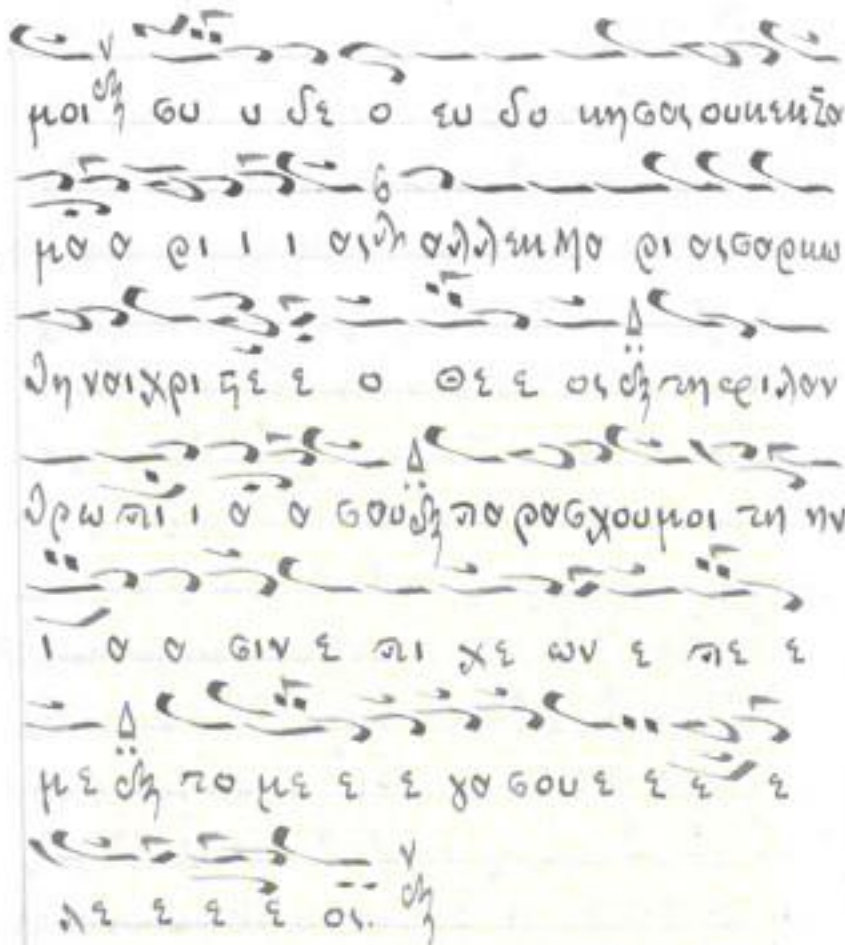 μοι συ υ δε ο ευ δο κησας ουκ εκ Στα
μα α ρι ι ι ας αλλ εκ Μα ρι ας σαρκω
θη ναι Χρι στε ε ο Θε ε ος τη φιλαν
θρω πι ι α α σου παρασχου μοι τη ην
ι α α σιν ε πι χε ων ε πε ε
με το με ε ε γα σου ε ε ε ε
λε ε ε ε ος.